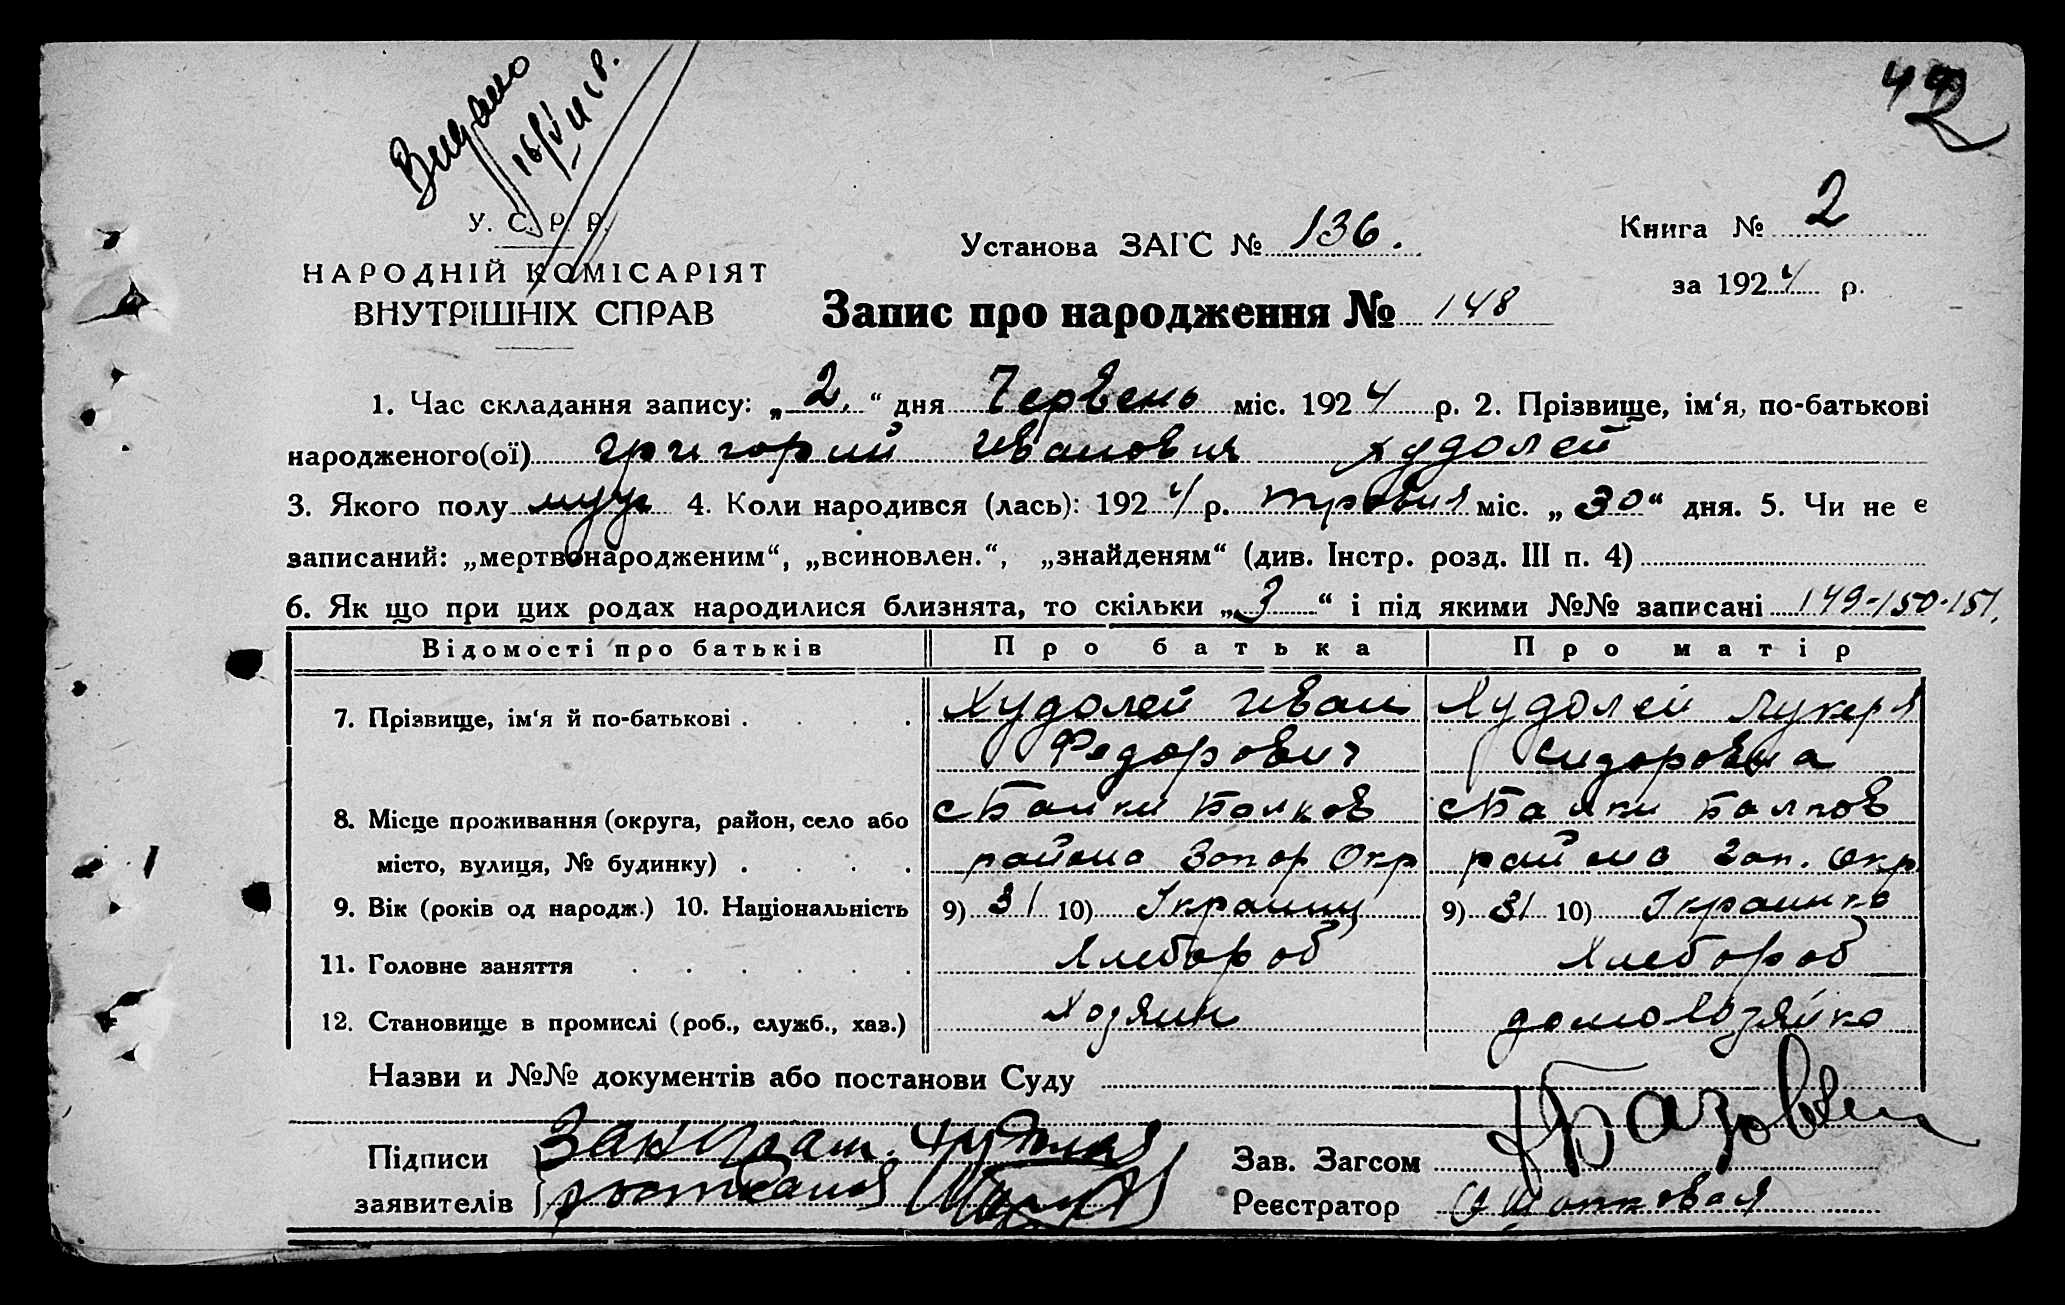 Видано
16/VII
42
У. С. Р. Р.
НАРОДНІЙ КОМІСАРІЯТ
ВНУТРІШНІХ СПРАВ
Установа ЗАГС № 136.
Книга № 2
за 1924 р.
Запис про народження № 148
1. Час складання запису: „2.“ дня Червень міс. 1924 р. 2. Прізвище, ім‘я, по-батькові
народженого(ої) Григорий Иванович Худолей
3. Якого полу муж 4. Коли народився (лась): 1924 р. травня міс. „30“ дня. 5. Чи не є
записаний: „мертвонародженим“, „всиновлен.“, „знайденям“ (див. Інстр. розд. III п. 4)
6. Як що при цих родах народилися близнята, то скільки „3“ і під якими №№ записані 149-150-151.
Відомості про батьків Про батька Про матір
7. Прізвище, ім‘я й по-батькові . . . . Худолей Иван Худолей Лукеря
Федорович Сидоровна
8. Місце проживання (округа, район, село або с Балки Балков с Балки Балков
місто, вулиця, № будинку) . . . . района Запор Окр района Зап. Окр
9. Вік (років од народж.) 10. Національність 9) 31 10) Украинц 9) 31 10) Украинка
11. Головне заняття . . . . . . Хлебороб Хлебороб
12. Становище в промислі (роб., служб., хаз.) Хозяин домохозяйка
Назви и №№ документів або постанови Суду
Підписи
заявителів
Зав. Загсом
Реєстратор